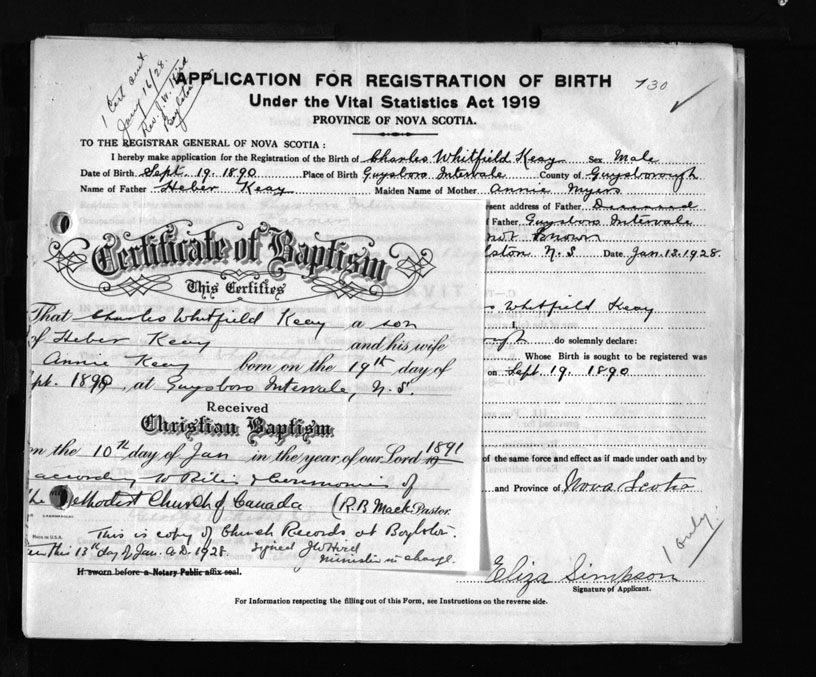 1 Cert sent
Jany 16/28
Rev. J. W. Hird
Boylston
APPLICATION FOR REGISTRATION OF BIRTH
730
Under the Vital Statistics Act 1919
PROVINCE OF NOVA SCOTIA.
TO THE REGISTRAR GENERAL OF NOVA SCOTIA :
I hereby make application for the Registration of the Birth of Charles Whitfield Keay Sex Male
Date of Birth Sept. 19. 1890 Place of Birth Guysboro Intervale County of Guysborough
Name of Father Heber Keay Maiden Name of Mother Annie Myers
esent address of Father Deceased
f Father Guysboro Intervale
not Known
lston N. S. Date Jan. 13. 1928.
Certificate of Baptism
This Certifies
That Charles Whitfield Keay a son
of Heber Keay and his wife
Annie Keay born on the 19th day of
pt. 1890, at Guysboro Intervale, N. S.
Received
Christian Baptism
on the 10th day of Jan in the year of our Lord 19 1891
according to Rites & Ceremonies of
the Methodist Church of Canada (R. B. Mack Pastor.
Made in U.S.A.
This is copy of Church Records at Boylston.
this 13th day of Jan. A.D. 1928. Signed J W Hird
minister in charge.
s Whitfield Keay
I,
do solemnly declare:
Whose Birth is sought to be registered was
on Sept 19. 1890
of the same force and effect as if made under oath and by
and Province of Nova Scotia
1 only.
If sworn before a Notary Public affix seal.
Eliza Simpson
Signature of Applicant.
For Information respecting the filling out of this Form, see Instructions on the reverse side.